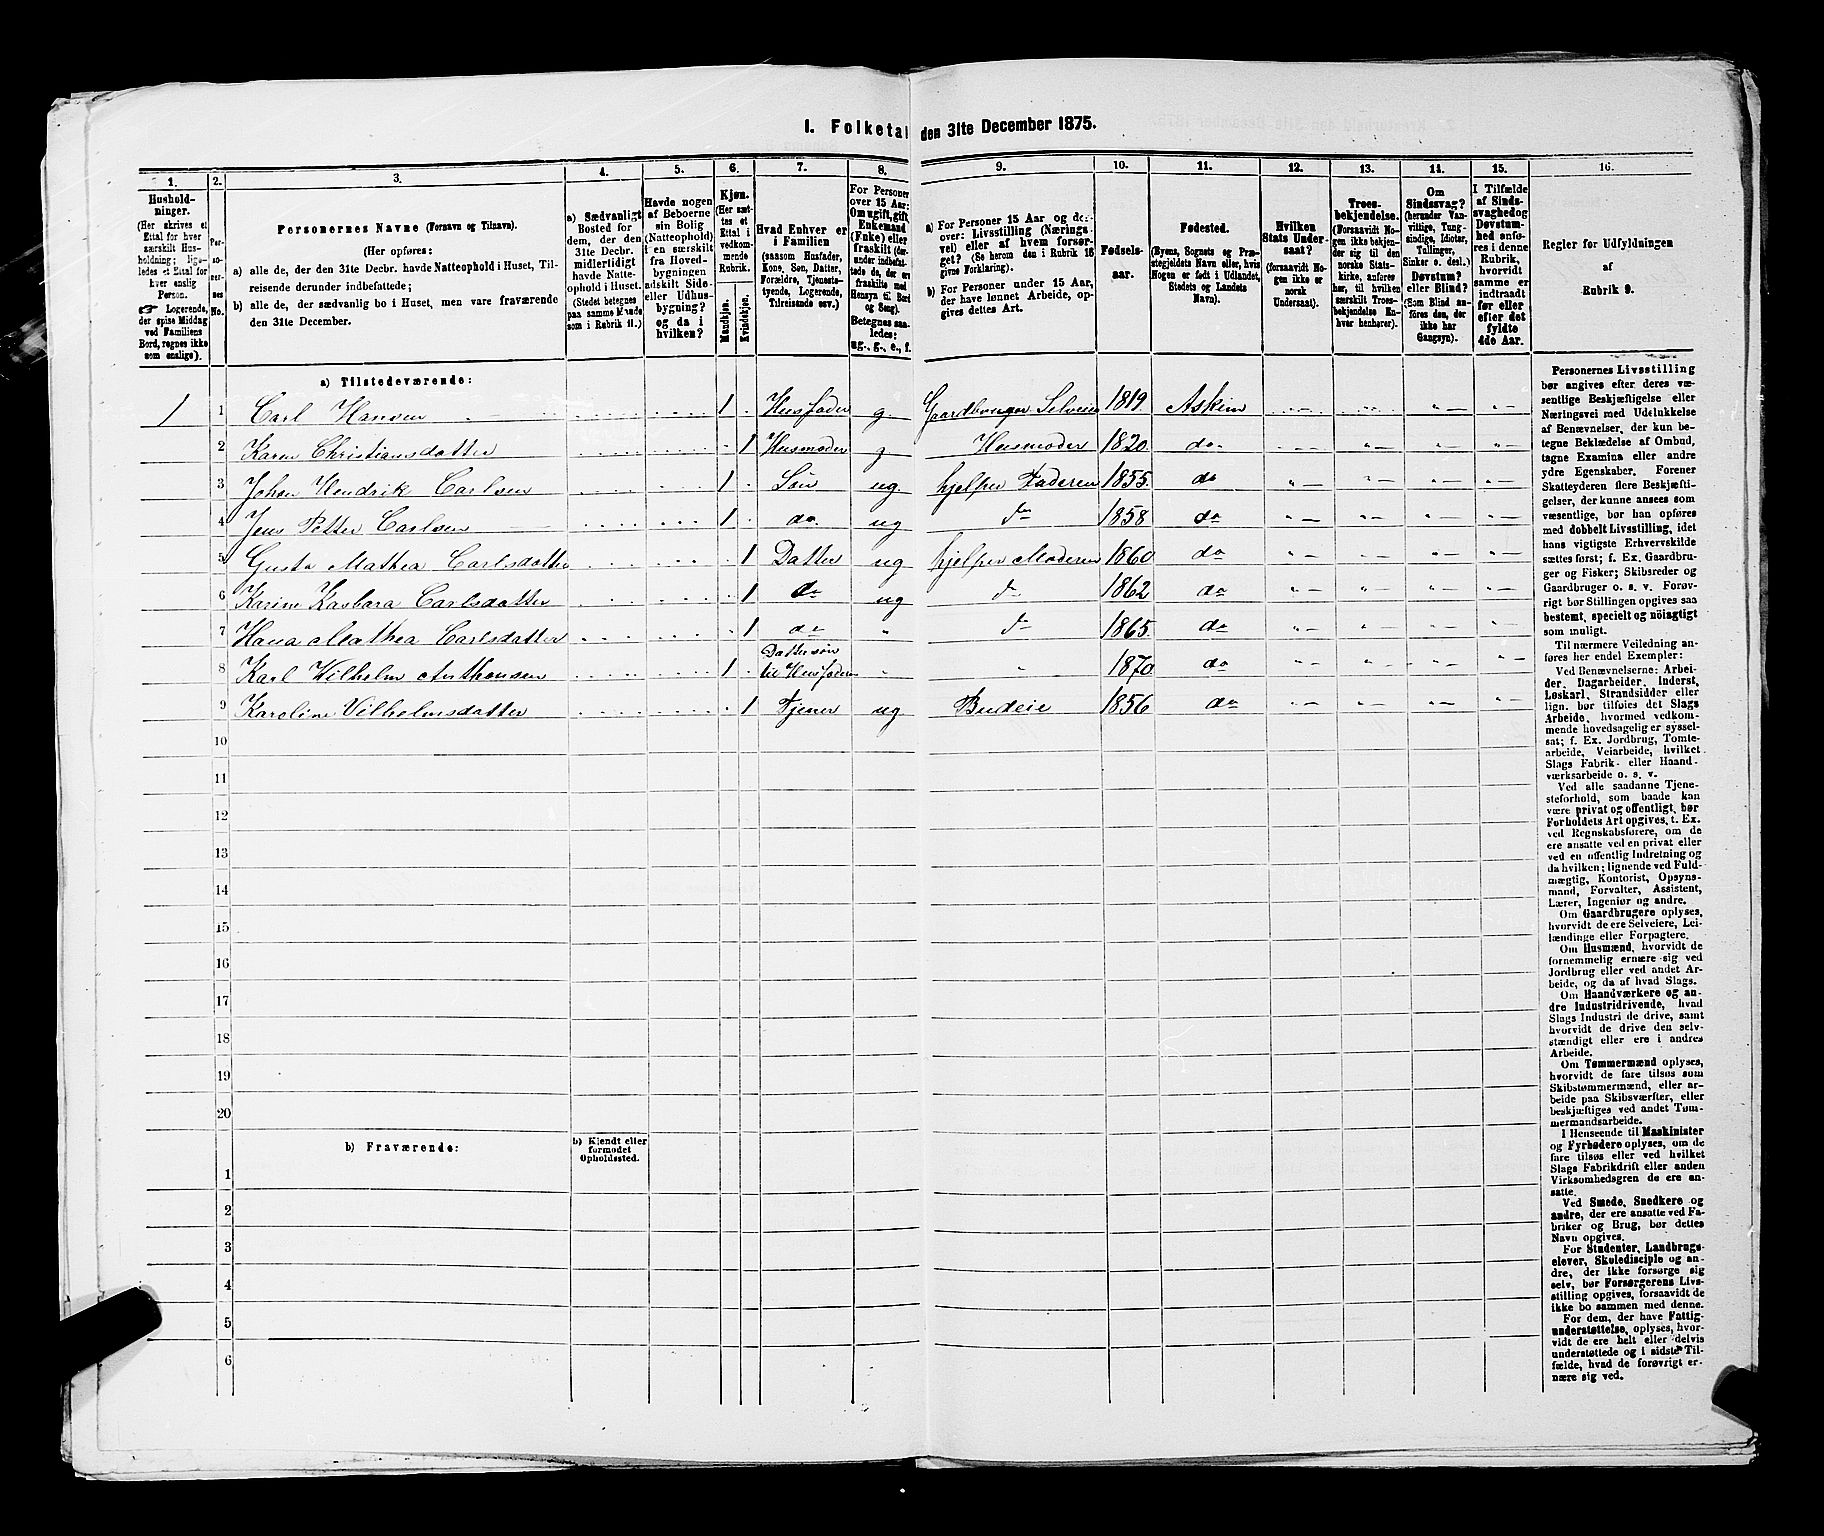 I. Folketal den 31te December 1875.
1.
Husholdninger.
(Her skrives et
Ettal for hver
særskilt Husholdning; ligeledes et Ettal for
hver enslig
Person.
☞ Logerende,
der spise Middag
ved Familiens
Bord, regnes ikke
som enslige).
2.
Personernes
No.
3.
Personernes Navne (Fornavn og Tilnavn).
(Her opføres:
a) alle de, der den 31te Decbr. havde Natteophold i Huset, Tilreisende derunder indbefattede;
b) alle de, der sædvanlig bo i Huset, men vare fraværende
den 31te December.
4.
a) Sædvanligt
Bosted for
dem, der den
31te Decbr.
midlertidigt
havde Natteophold i Huset.
(Stedet betegnes
paa samme Maade
som i Rubrik 11.)
5.
Havde nogen
af Beboerne
sin Bolig
(Natteophold)
i en særskilt
fra Hovedbygningen
adskilt Side-
eller Udhusbygning?
og da i
hvilken?
6.
Kjøn.
(Her sættes et
Ettal i
vedkommende
Rubrik.
Mandkjøn.
Kvindekjøn.
7.
Hvad Enhver er
i Familien
(saasom Husfader,
Kone, Søn, Datter,
Forældre, Tjenestetyende, Logerende,
Tilreisende osv.)
8.
For Personer
over 15 Aar:
Om ugift, gift,
Enkemand
(Enke) eller
fraskilt (derunder indbefattede de, der ere
fraskilte med
Hensyn til Bord
og Seng).
Betegnes saaledes:
ug., g., e., f.
9.
a) For Personer 15 Aar og derover: Livsstilling (Næringsvei) eller af hvem forsørget? (Se herom den i Rubrik 16
givne Forklaring).
b) For Personer under 15 Aar,
der have lønnet Arbeide, opgives dettes Art.
10.
Fødselsaar.
11.
Fødested.
(Byens, Sognets og Præstegjeldets Navn eller, hvis
Nogen er født i Udlandet,
Stedets og Landets
Navn).
12.
Hvilken
Stats Undersaat?
(forsaavidt Nogen ikke er
norsk
Undersaat).
13.
Troesbekjendelse.
(Forsaavidt Nogen ikke bekjender sig til den
norske Statskirke, anføres
her, til hvilken
særskilt Troesbekjendelse Enhver henhører).
14.
Om
Sindssvag?
(herunder Vanvittige, Tungsindige, Idioter,
Tullinger,
Sinker o. desl.)
Døvstum?
eller Blind?
(Som Blind anføres den, der
ikke har
Gangsyn).
15.
I Tilfælde
af Sindssvaghed og
Døvstumhed anføres i denne
Rubrik,
hvorvidt
samme er
indtraadt
før eller
efter det
fyldte
4de Aar.
16.
Regler for Udfyldningen
af
Rubrik 9.
a) Tilstedeværende:
1 1 Carl Hansen 1 Husfader g. Gaardbruger Selveier 1819. Askim
2 Karen Christiansdatter 1 Husmoder g Husmoder 1820. do
3 Johan Hendrik Carlsen 1 Søn ug. hjelper Faderen 1855. do
4 Jens Petter Carlsen 1 do. ug do 1858 do
5 Gusta Mathea Carlsdatter 1 Datter ug hjelper Moderen 1860. do
6 Karine Karbara Carlsdatter 1 do ug do 1862 do
7 Hana Mathea Carlsdatter 1 do " do 1865. do
8 Karl Wilhelm Anthonsen 1 Dattersøn til Husfaderen 1870. do
9 Karoline Vilholmsdatter 1 Tjener ug Budeie 1856 do
10
11
12
13
14
15
16
17
18
19
20
b) Fraværende:
b) Kjendt eller
formodet
Opholdssted.
1
2
3
4
5
6
Personernes Livsstilling
bør angives efter deres væsentlige Beskjæftigelse eller
Næringsvei med Udelukkelse
af Benævnelser, der kun betegne Beklædelse af Ombud,
tagne Examina eller andre
ydre Egenskaber. Forener
Skatteyderen flere Beskjæftigelser, der kunne ansees som
væsentlige, bør han opføres
med dobbelt Livsstilling, idet
hans vigtigste Erhvervskilde
sættes først; f. Ex. Gaardbruger og Fisker; Skibsreder og
Gaardbruger o. s. v. Forøvrigt bør Stillingen opgives saa
bestemt, specielt og nöiagtigt
som muligt.
Til nærmere Veiledning anføres her endel Exempler:
Ved Benævnelserne: Arbeider, Dagarbeider, Inderst,
Løskarl, Strandsidder eller
lign. bør tilføies det Slags
Arbeide, hvormed vedkommende hovedsagelig er sysselsat; f. Ex. Jordbrug, Tomtearbeide, Veiarbeide, hvilket
Slags Fabrik- eller Haandværksarbeide o. s. v.
Ved alle saadanne Tjenesteforhold, som baade kan
være privat og offentligt, bør
Forholdets Art opgives, t. Ex.
ved Regnskabsførere, om de
ere ansatte ved en privat eller
ved en offentlig Indretning og
da hvilken; lignende ved Fuldmægtig, Kontorist, Opsynsmand, Forvalter, Assistent,
Lærer, Ingeniør og andre.
Om Gaardbrugere oplyses,
hvorvidt de ere Selveiere, Leilændinge eller Forpagtere.
Om Husmænd, hvorvidt de
fornemmelig ernære sig ved
Jordbrug eller ved andet Arbeide, og da af hvad Slags.
Om Haandværkere og andre Industridrivende, hvad
Slags Industri de drive, samt
hvorvidt de drive den selvstændigt eller ere i andres
Arbeide.
Om Tømmermænd oplyses,
hvorvidt de fare tilsøs som
Skibstømmermænd, eller arbeide paa Skibsværfter, eller
beskjæftiges ved andet Tømmermandsarbeide.
I Henseende til Maskinister
og Fyrbødere oplyses, om de
fare tilsøs eller ved hvilket
Slags Fabrikdrift eller anden
Virksomhedsgren de ere ansatte.
Ved Smede, Snedkere og
andre, der ere ansatte ved Fabriker og Brug, bør dettes
Navn opgives.
For Studenter, Landbrugselever, Skoledisciple og andre, der ikke forsørge sig
selv, bør Forsørgerens Livsstilling opgives, forsaavidt de
ikke bo sammen med denne.
For dem, der have Fattigunderstøttelse, oplyses, hvorvidt de ere helt eller delvis
understøttede og i sidste Tilfælde, hvad de forøvrigt ernære sig ved.